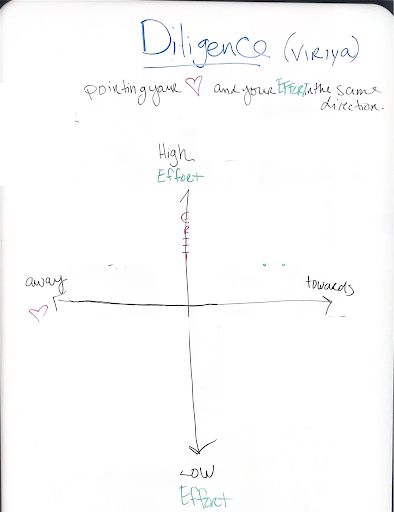 Diligence (VIRIYA)
pointing your ♡ and your EFFORT in the same
direction.
High
Effort
GRIT
away
towards
♡
LOW
Effort